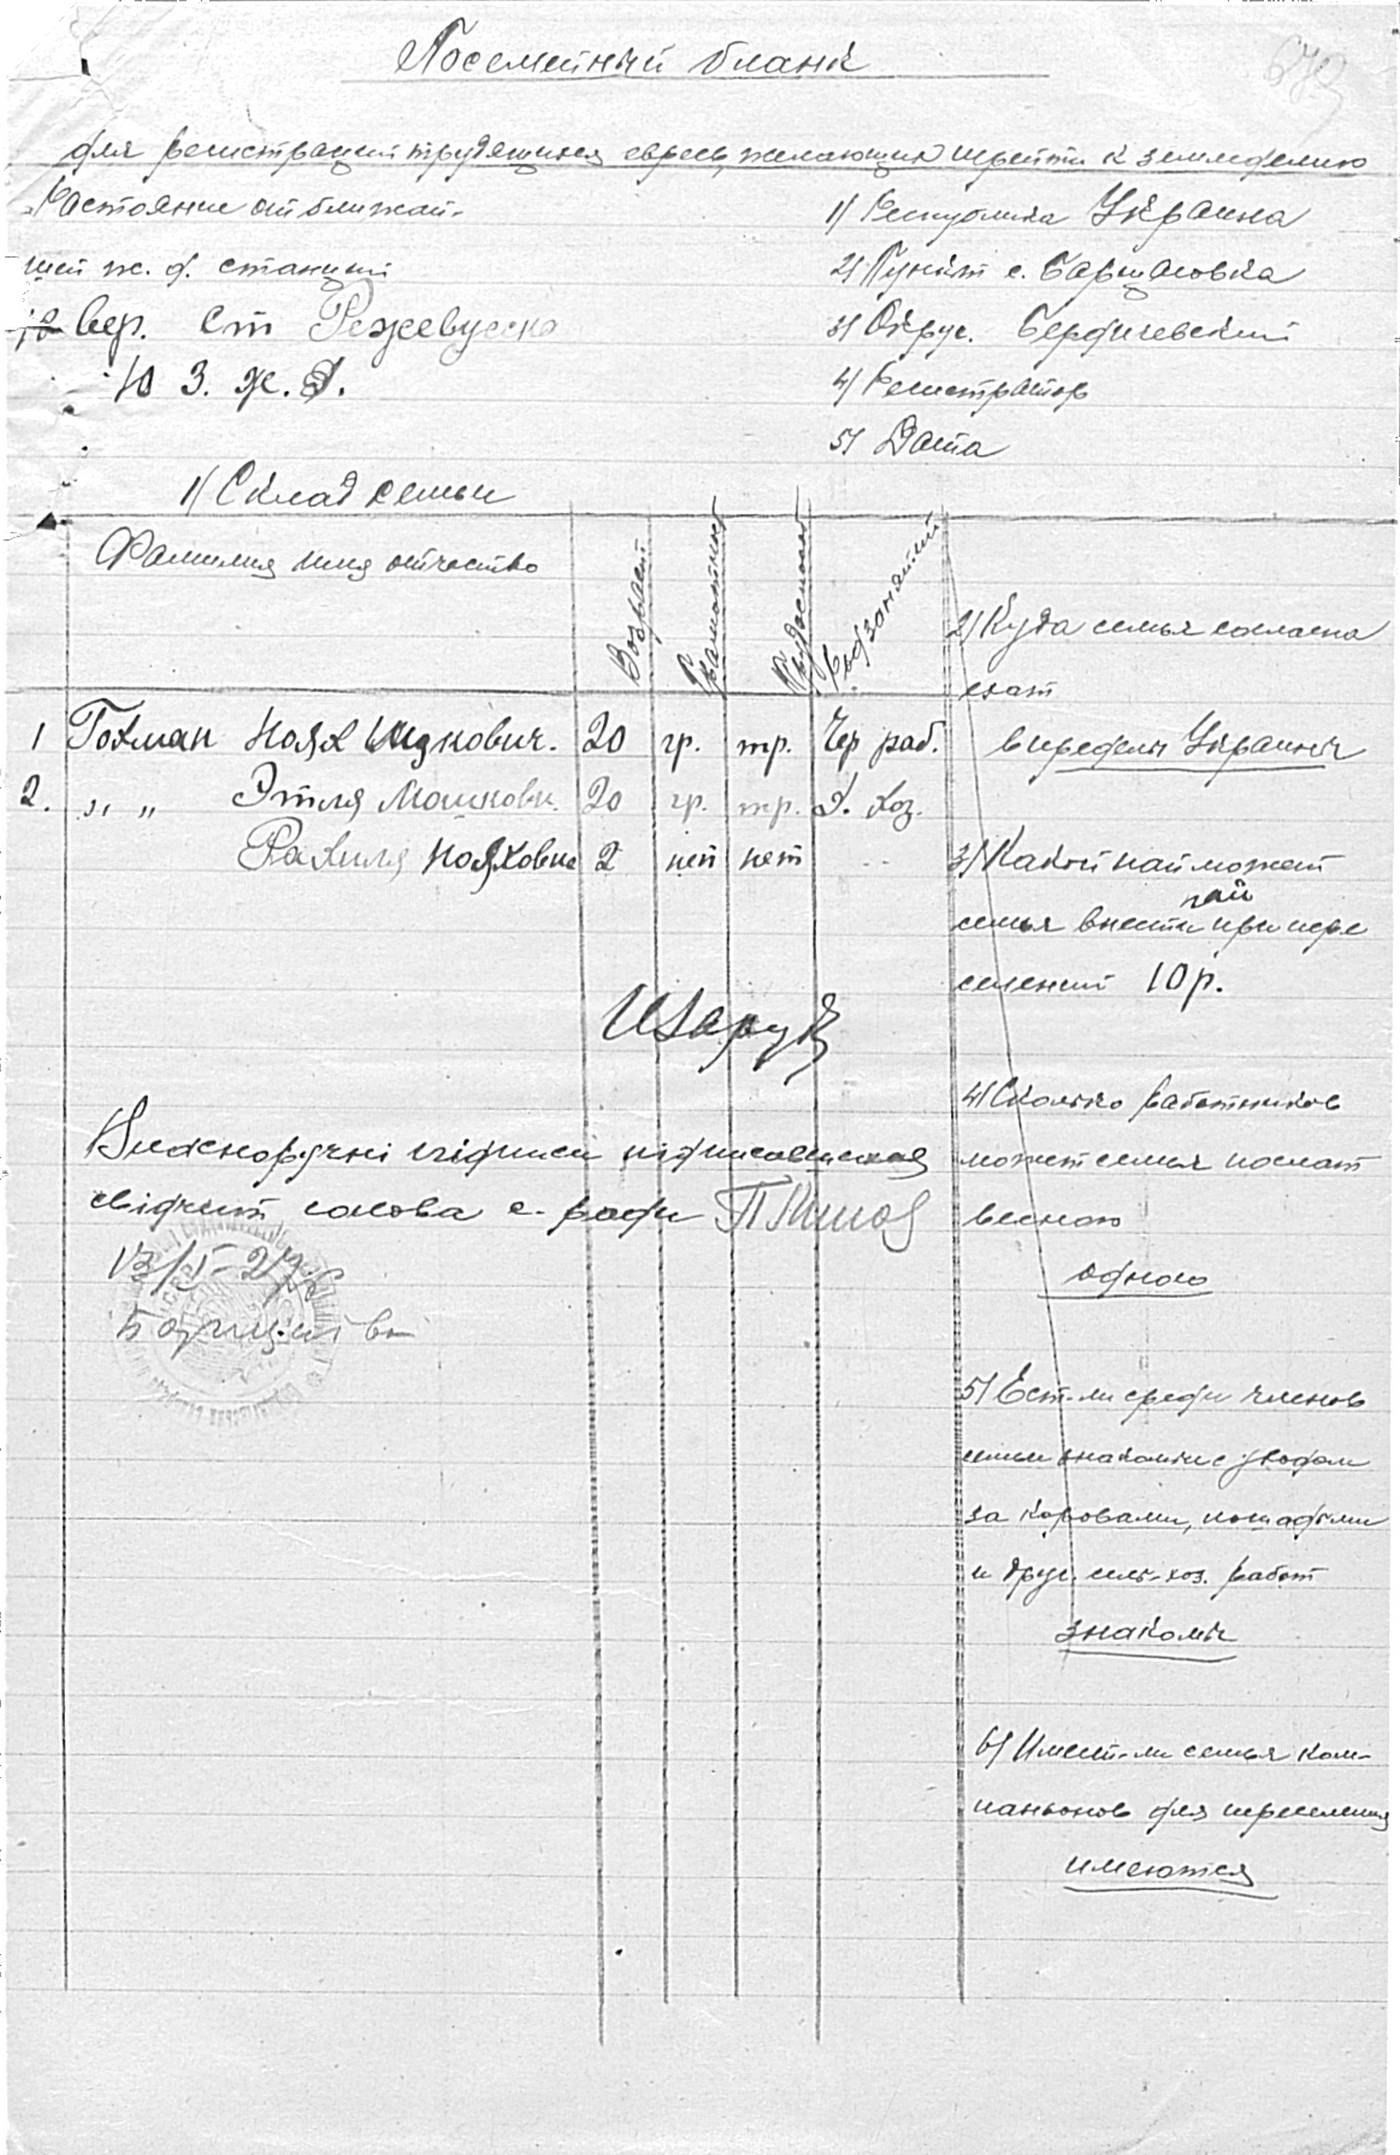 Посемейный бланк
679
для регистрации трудящихся евреев, желающих перейти к земледелию
Растояние от ближай-
шей ж. д. станции
вер. Ст Ржевусска
Ю З. Ж. Д.
1) Республика Украина
2) Пункт с. Барщаговка
3) Округ. Бердичевский
4) Регистратор
5) Дата
1) Склад семьи
Фамилия имя отчество
Возраст
Грамотност
Трудоспособ
Род занятий
1 Гохман Ноях Ицкович. 20 гр. тр. Чер раб.
2. „ „ Этля Мошковн. 20 гр. тр. Д. хоз.
Рахиля Нояховна 2 нет нет
2) Куда семья согласна
ехат
в пределы Украины
3) Какой пай может
пай
семья внести при пере
селений 10 р.
4) Сколько работников
может семья послат
весною
одного
5) Ест-ли среди членов
семьи знакомые с уходом
за коровами, лошадьми
и друг. сель-хоз. работ
знакомы
6) Имеет-ли семья ком-
паньонов для переселения
имеются
Власноручні підписи
свідчит голова с-ради
13/І-27 р
Борщагівка